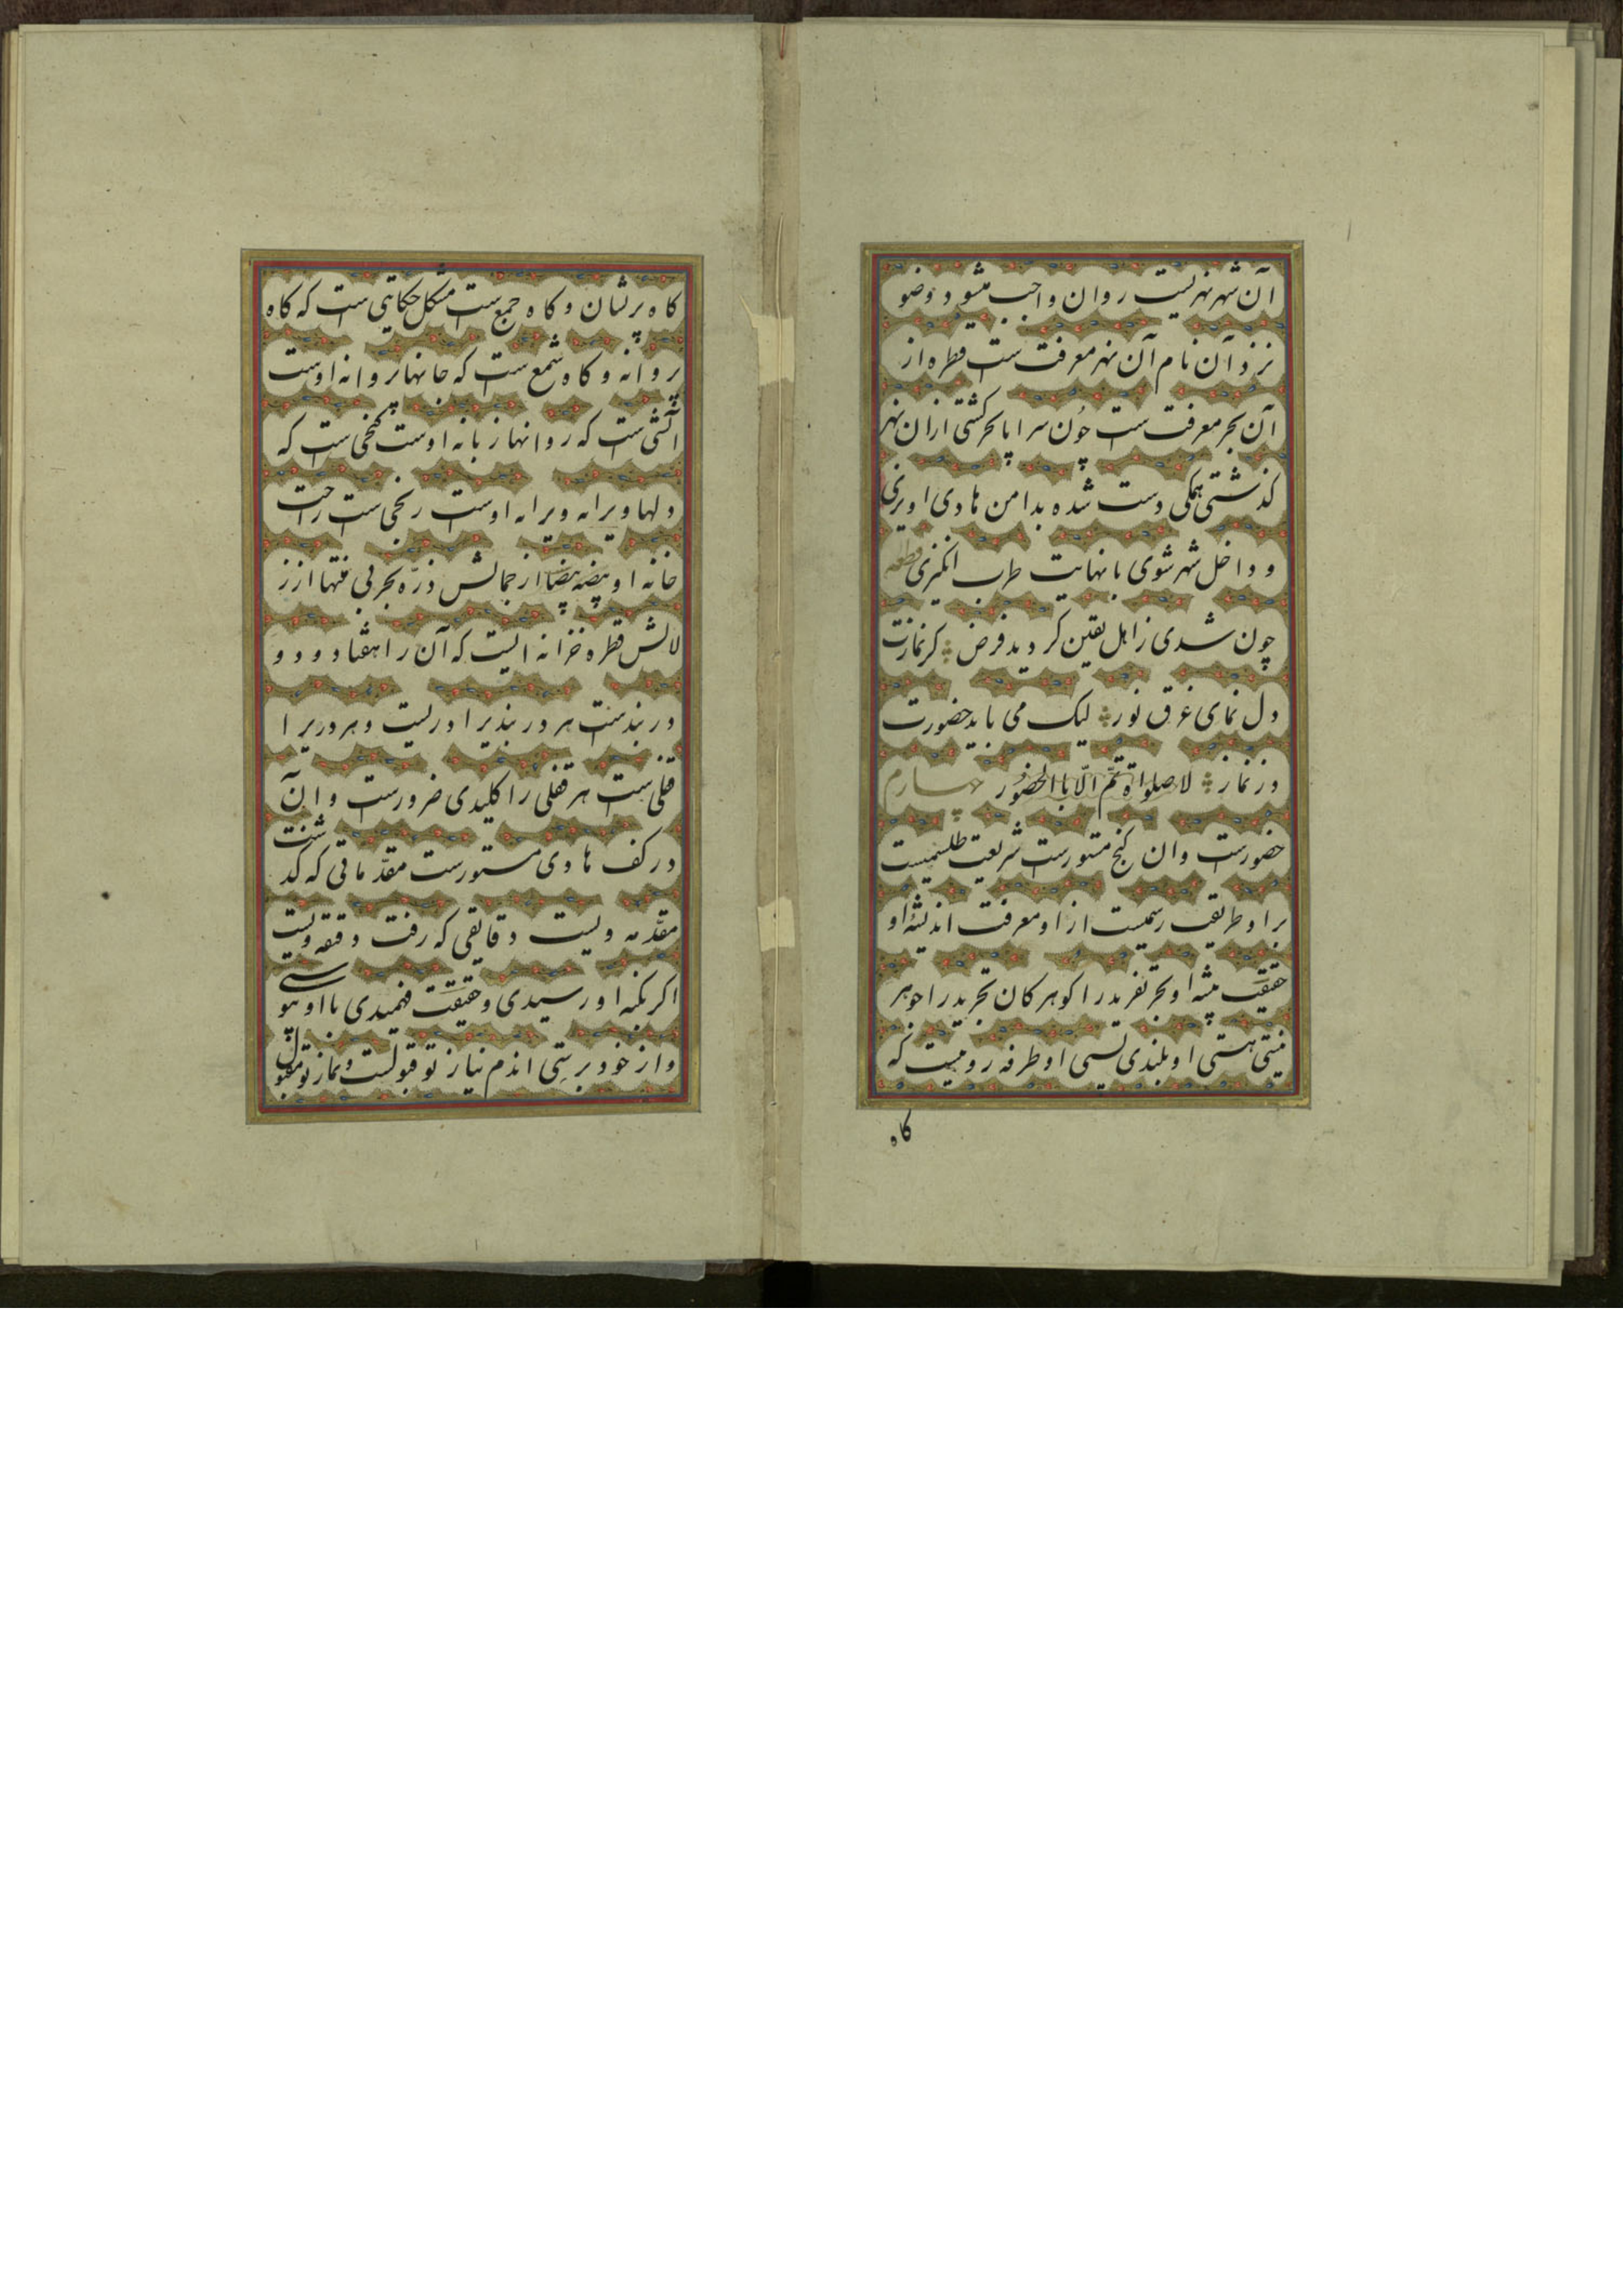 آن شهر نهریست روان واجب میشود وضو
نزد آن نام آن نهر معرفت ست قطره از
آن بحر معرفت ست چون سراپا بحر کشتی ازان نهر
کذشتی همکی دست شده بدامن هادی اویزی
و داخل شهر شوی با نهایت طرب انکیزی قطعه
چون شدی ز اهل یقین کردید فرض کر نمازت
دل نمای غرق نور لیک می باید حضورت
در نماز لا صلواة تم الّا باالحضور چهارم
حضورست وان کنج مستورست شریعت طلسمیست
براو طریقت رسمیست ازاو معرفت اندیشهٔ او
حقیقت پیشه او بحر تفرید را کوهر کان تجرید را جوهر
نیستی هستی او بلندی پستی او طرفه رومیست که
کاه
کاه پریشان و کاه جمع ست مشکل حکایتی ست که کاه
پروانه و کاه شمع ست که جانها پروانه اوست
اتشی ست که روانها زبانه اوست کنجی ست که
دلها ویرانه ویرانه اوست رنجی ست راحت
خانه او بیضه بیضا از جمالش ذره بحر بی منتها از ز
لالش قطره خزانه ایست که آن را هفتاد و دو
در بندست هر در بندیرا دریست و هر دریرا
قفلی ست هر قفلی را کلیدی ضرورست و آن
در کف هادی مستورست مقدّماتی که کد شت
مقدّمه ویست دقایقی که رفت دقیقه ویست
اکر بکنه او رسیدی و حقیقت فهمیدی با او پیوستی
و از خود برستی اندم نیاز تو قبولست و نماز تو مقبول